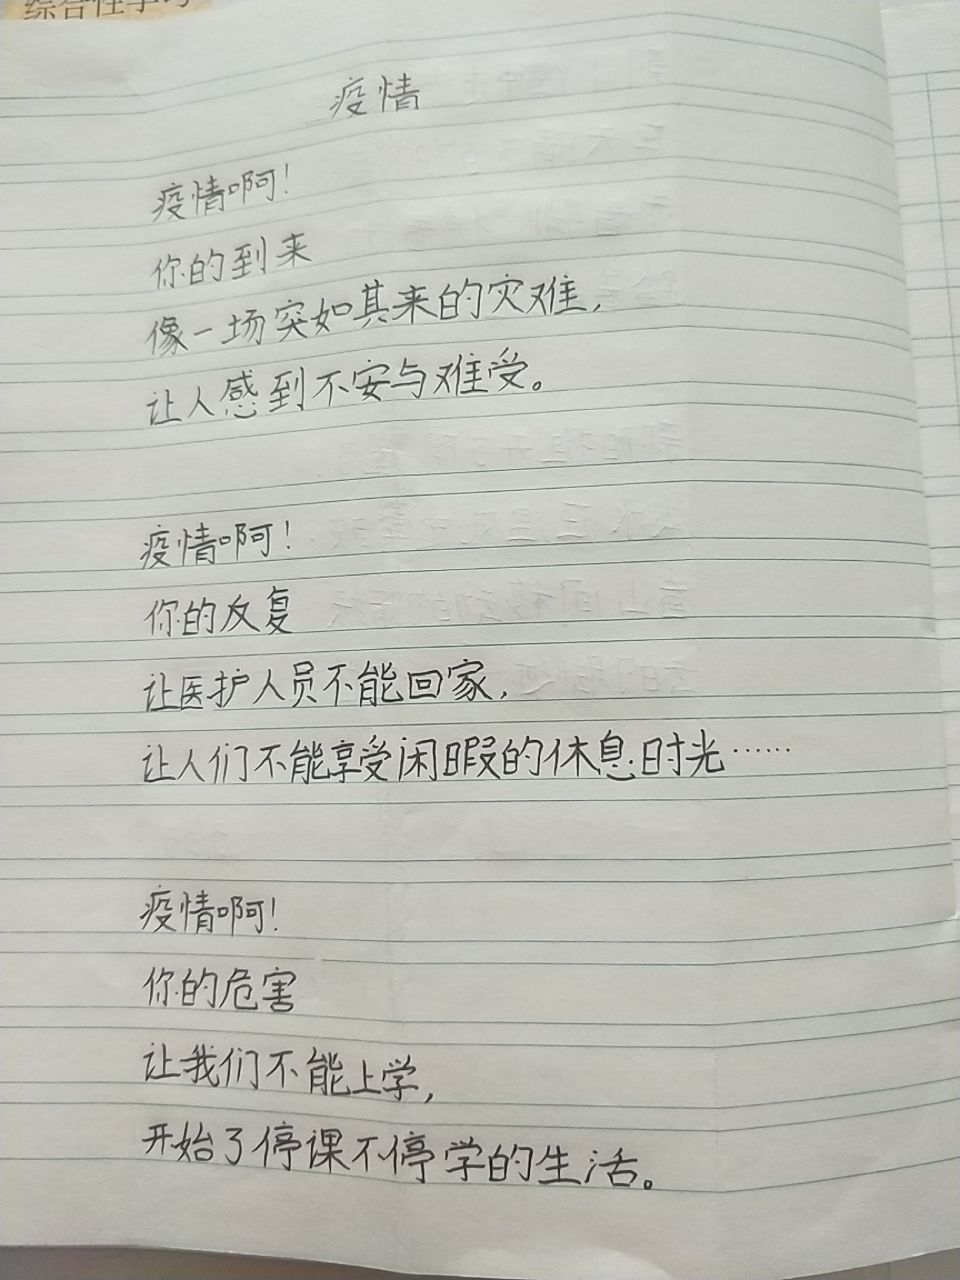 综合性学习
疫情
疫情啊！
你的到来
像一场突如其来的灾难，
让人感到不安与难受。
疫情啊！
你的反复
让医护人员不能回家，
让人们不能享受闲暇的休息时光……
疫情啊！
你的危害
让我们不能上学，
开始了停课不停学的生活。